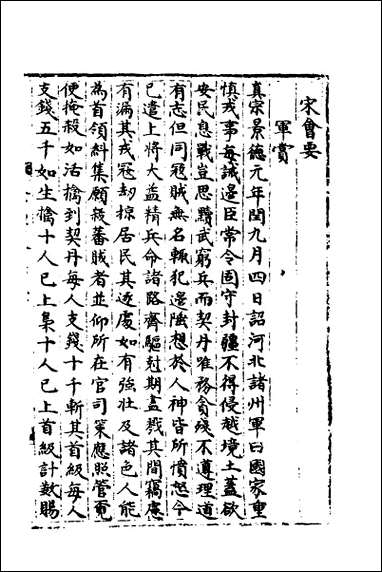 宋會要
軍賞
真宗景德元年閏九月四日詔河北諸州軍曰國家重
慎戎事每誡邊臣常令固守封疆不得侵越境土蓋欲
安民息戰豈思黷武窮兵而契丹唯務貪殘不遵理道
有志但同冦賊無名輒犯邊陲想於人神皆所憤怒今
已遣上將大益精兵命諸路齊驅尅期盡戮其間竊慮
有漏其戎冦刼掠居民其逐處如有強壮及諸色人能
為首領糾集願殺蕃賊者並仰所在官司策應照管更
便掩殺如活擒到契丹每人支錢十千斬其首級每人
支錢五千如生擒十人已上集十人已上首級計數賜